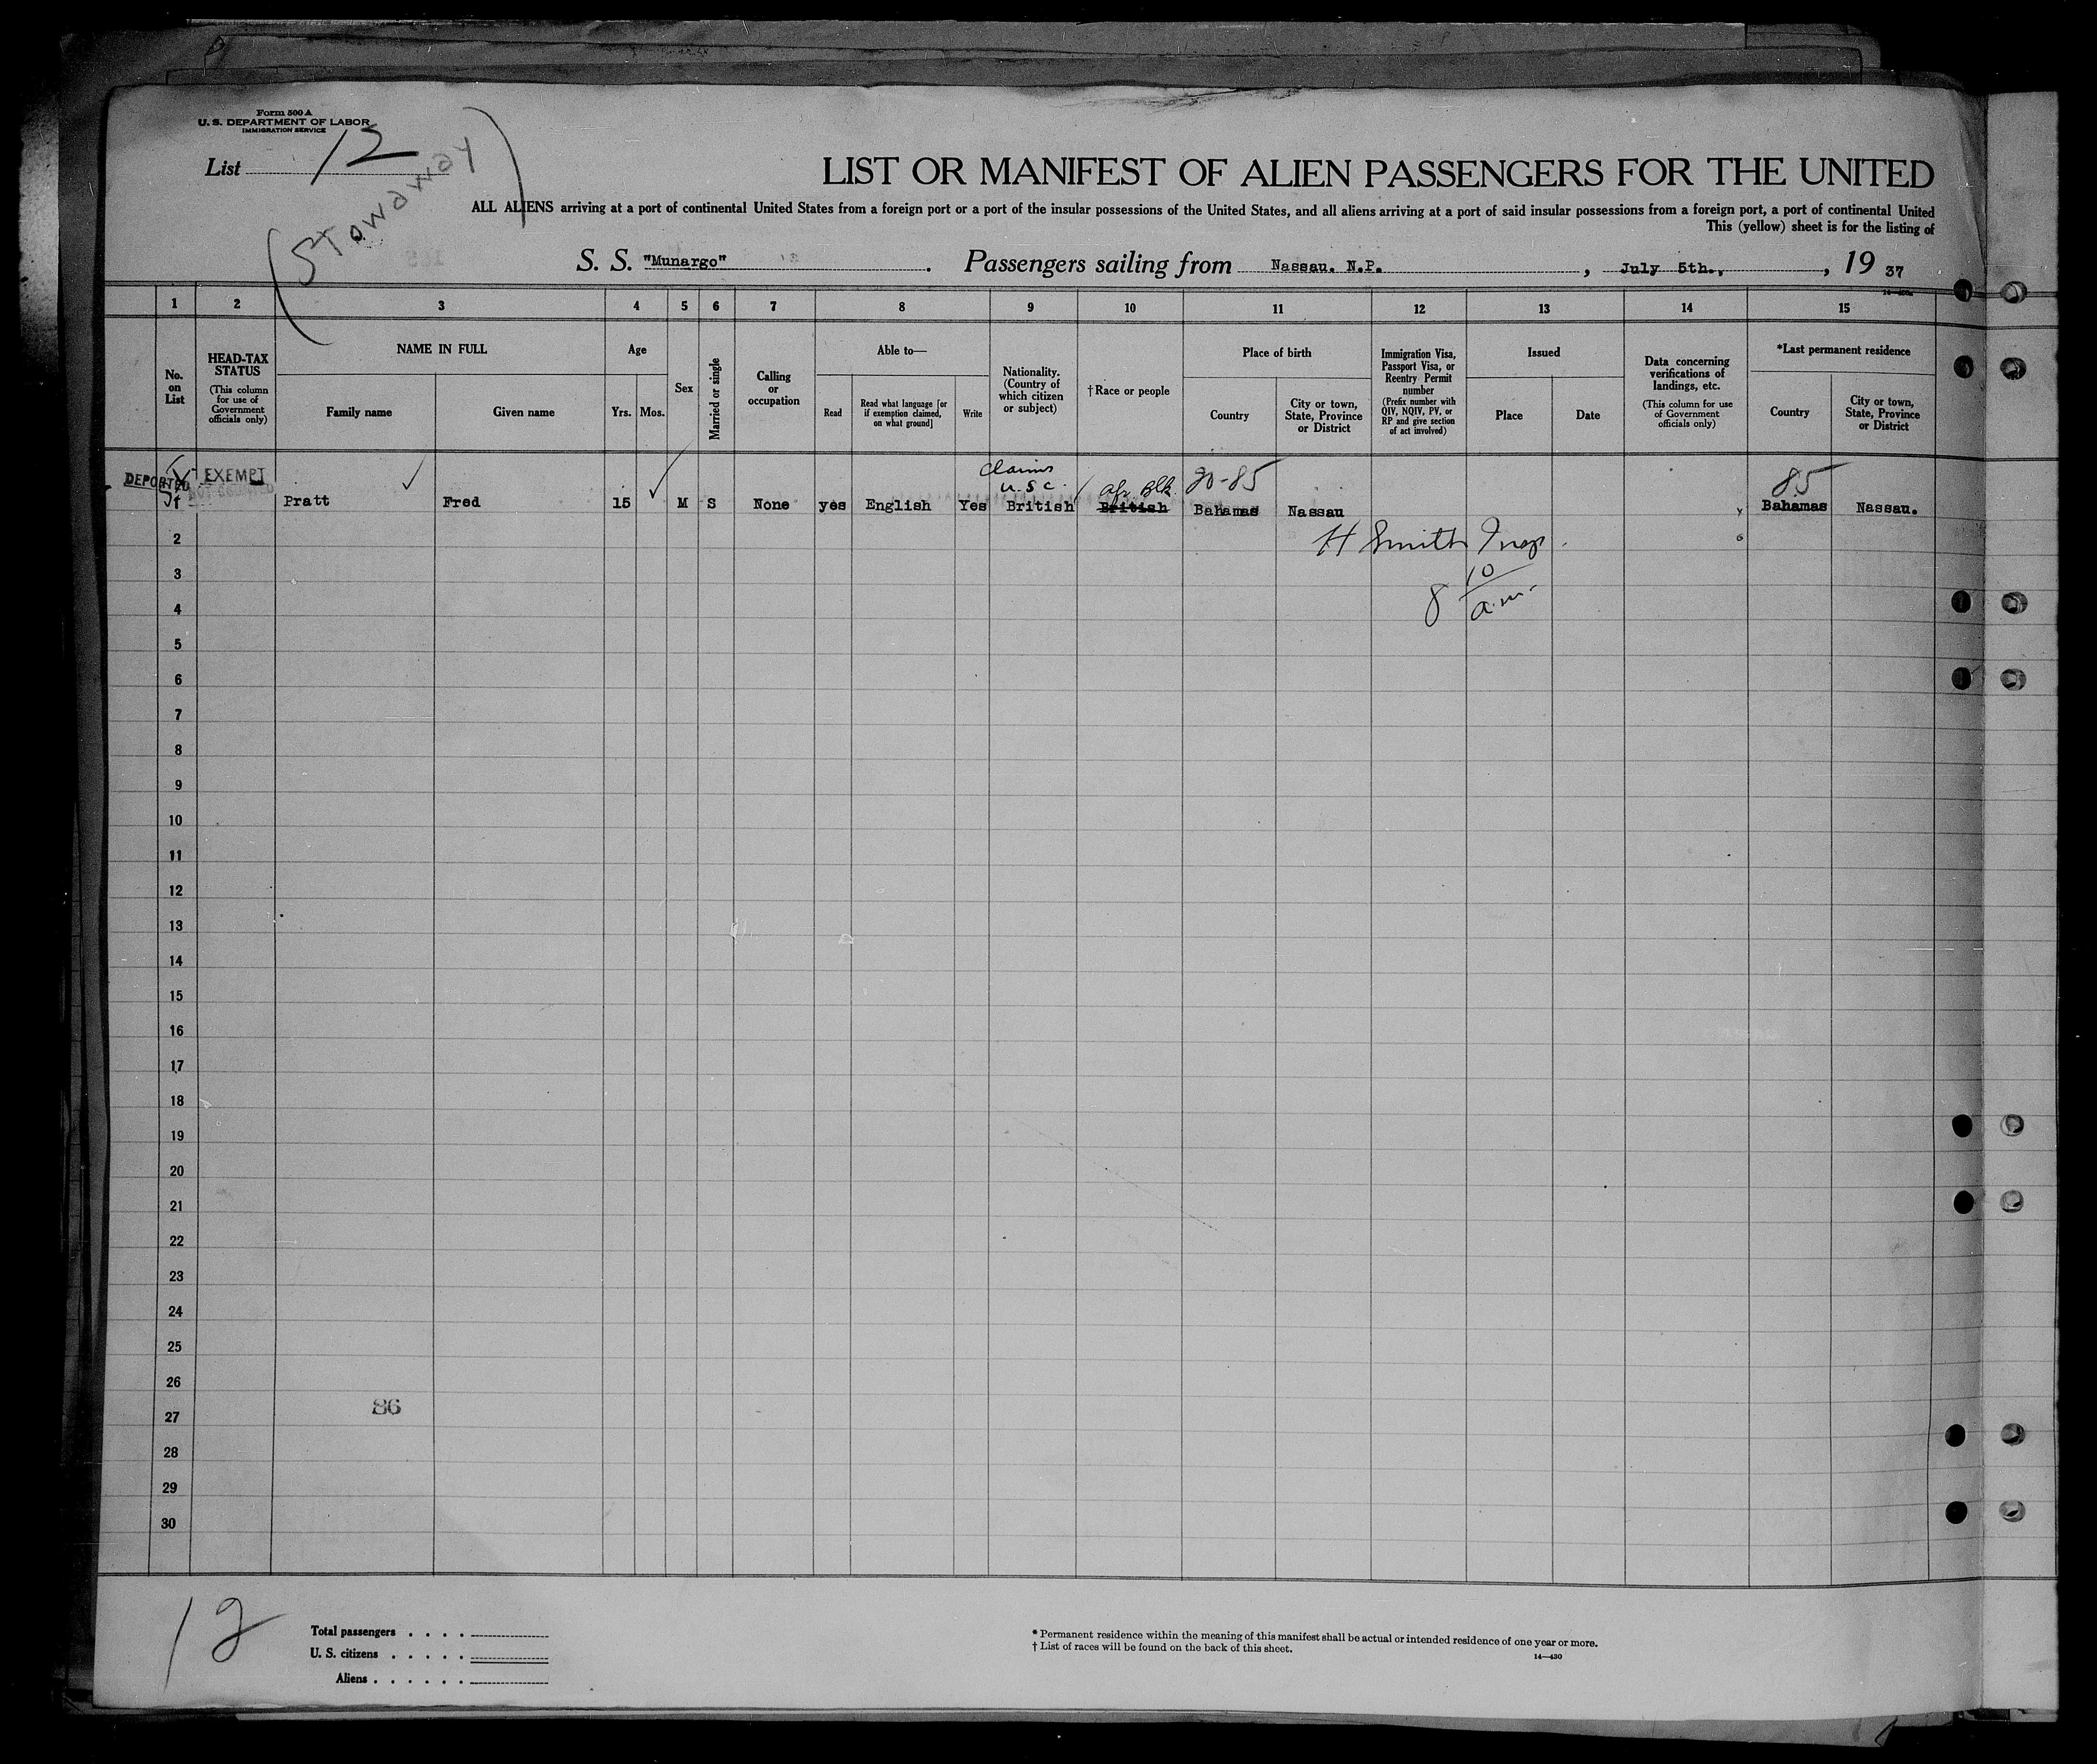 Form 500 A
U. S. DEPARTMENT OF LABOR
IMMIGRATION SERVICE
List 12
(Stowaway)
LIST OR MANIFEST OF ALIEN PASSENGERS FOR THE UNITED
ALL ALIENS arriving at a port of continental United States from a foreign port or a port of the insular possessions of the United States, and all aliens arriving at a port of said insular possessions from a foreign port, a port of continental United
This (yellow) sheet is for the listing of
S. S. "Munargo" . Passengers sailing from Nassau. N.P. , July 5th., , 19 37
1 2 3 4 5 6 7 8 9 10 11 12 13 14 15
No. on List
HEAD-TAX STATUS (This column for use of Government officials only)
NAME IN FULL
Family name
Given name
Age
Yrs.
Mos.
Sex
Married or single
Calling or occupation
Able to—
Read
Read what language [or if exemption claimed, on what ground]
Write
Nationality. (Country of which citizen or subject)
† Race or people
Place of birth
Country
City or town, State, Province or District
Immigration Visa, Passport Visa, or Reentry Permit number (Prefix number with QIV, NQIV, PV, or RP and give section of act involved)
Issued
Place
Date
Data concerning verifications of landings, etc. (This column for use of Government officials only)
*Last permanent residence
Country
City or town, State, Province or District
DEPORTED EXEMPT claims U.S.C. Afr Blk. 20-85 85
1 Pratt Fred 15 M S None yes English Yes British British Bahamas Nassau Bahamas Nassau.
2 H Smith Insp.
3
4 8 10/a.m.
5
6
7
8
9
10
11
12
13
14
15
16
17
18
19
20
21
22
23
24
25
26
86
27
28
29
30
12
Total passengers . . . .
U. S. citizens . . . . .
Aliens . . . . . .
* Permanent residence within the meaning of this manifest shall be actual or intended residence of one year or more.
† List of races will be found on the back of this sheet.
14—430